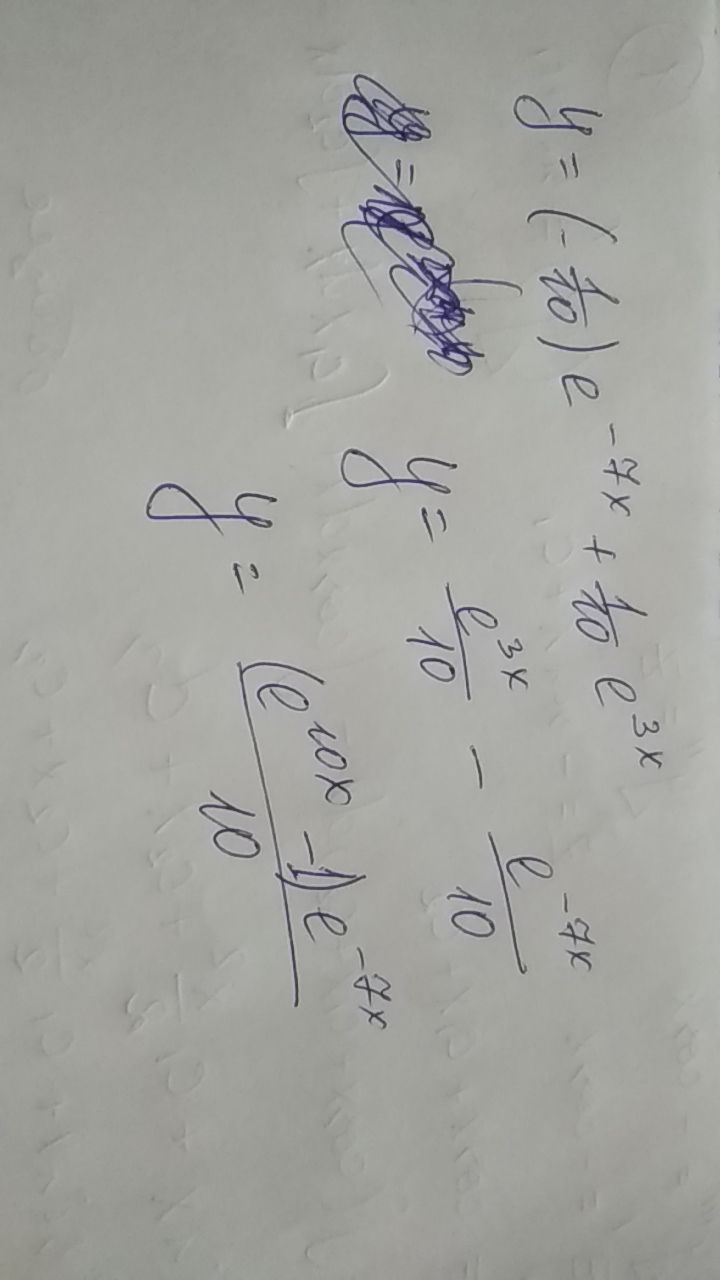 y = (-1/10) e^{-7x} + 1/10 e^{3x}
y = e^{3x}/10 - e^{-7x}/10
y = (e^{10x} - 1) e^{-7x}/10